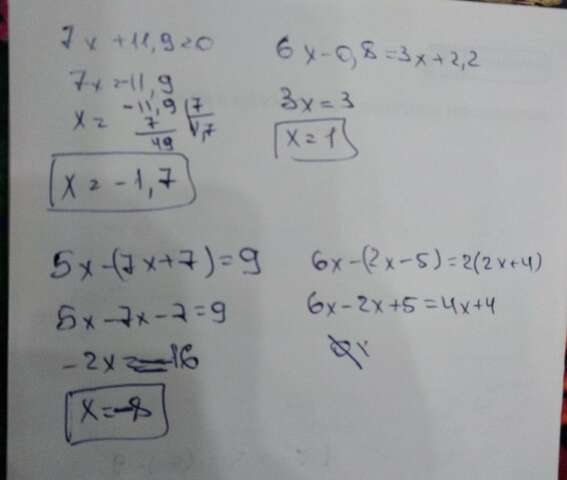 7x+11,9=0
7x=-11,9
x= -11,9 | 7
7 1,7
49
x=-1,7
6x-0,8=3x+2,2
3x=3
x=1
5x-(7x+7)=9
5x-7x-7=9
-2x=16
x=-8
6x-(2x-5)=2(2x+4)
6x-2x+5=4x+4